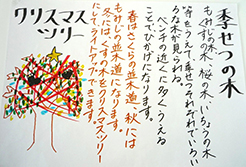 季せつの木
もみじの木、桜の木、いちょうの木
等をうえて季せつそれぞれでいろい
ろな木が見られる。
ベンチの近くに多くうえる
ことでひかげになります。
春はさくらの並木道、秋には
もみじの並木道になります。
冬には、くすの木をクリスマスツリー
にしてライトアップできます。
クリスマス
ツリー